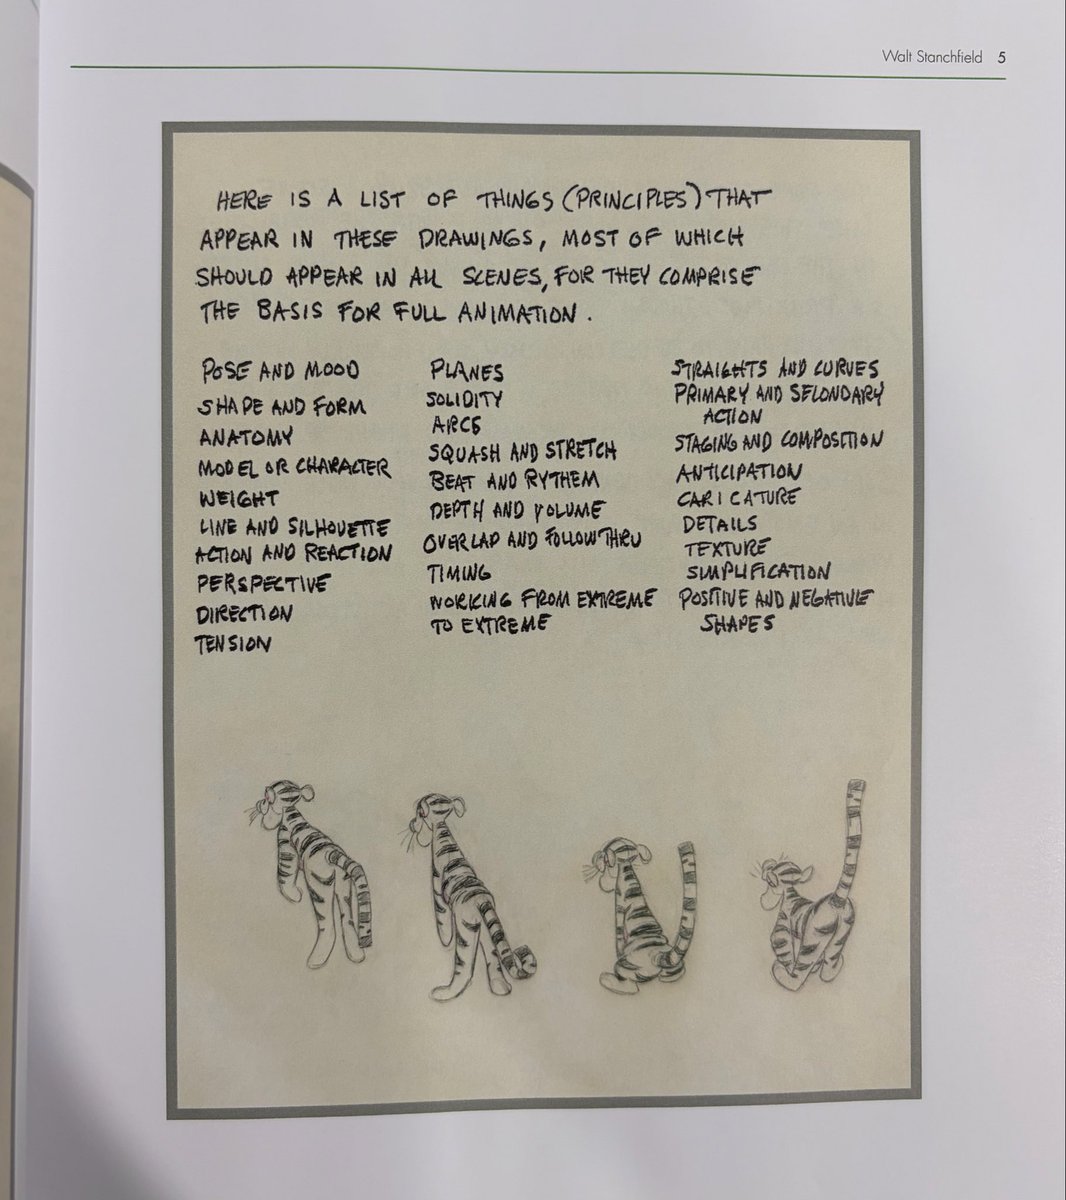 Walt Stanchfield 5
HERE IS A LIST OF THINGS (PRINCIPLES) THAT
APPEAR IN THESE DRAWINGS, MOST OF WHICH
SHOULD APPEAR IN ALL SCENES, FOR THEY COMPRISE
THE BASIS FOR FULL ANIMATION.
POSE AND MOOD
SHAPE AND FORM
ANATOMY
MODEL OR CHARACTER
WEIGHT
LINE AND SILHOUETTE
ACTION AND REACTION
PERSPECTIVE
DIRECTION
TENSION
PLANES
SOLIDITY
ARCS
SQUASH AND STRETCH
BEAT AND RYTHEM
DEPTH AND VOLUME
OVERLAP AND FOLLOW THRU
TIMING
WORKING FROM EXTREME
TO EXTREME
STRAIGHTS AND CURVES
PRIMARY AND SECONDARY
ACTION
STAGING AND COMPOSITION
ANTICIPATION
CARICATURE
DETAILS
TEXTURE
SIMPLIFICATION
POSITIVE AND NEGATIVE
SHAPES